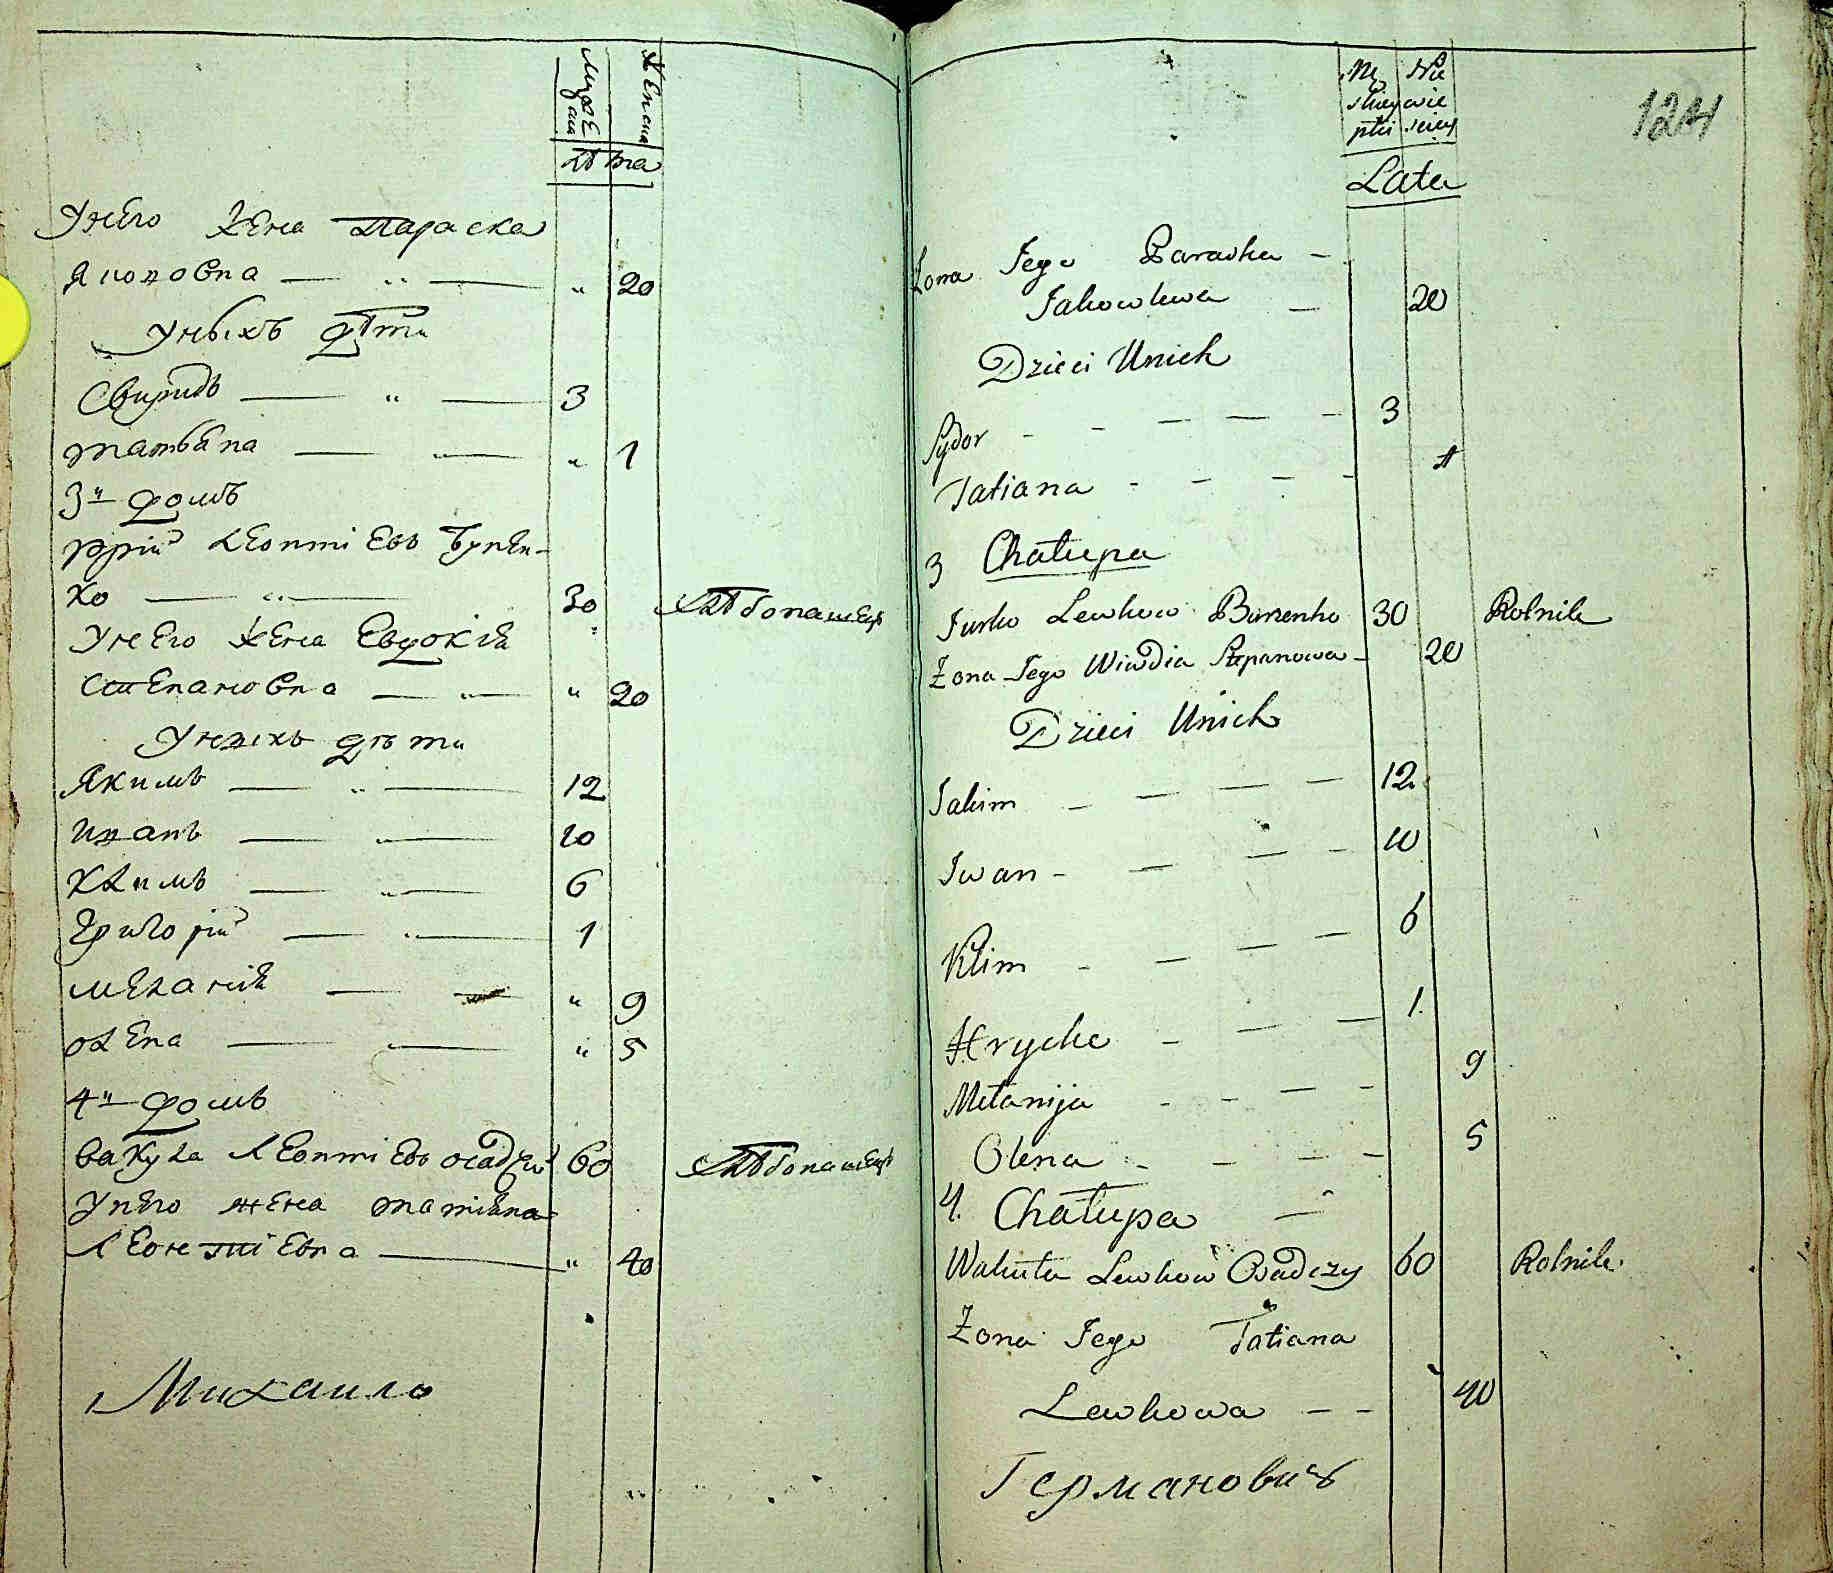 Мужеска
Женска
Лѣта
Унего жена Параска
Якововна — „ — „ 20
Уныхъ дѣти
Свиридъ — „ — 3
Татьѣна — „ — „ 1
3й домъ
Юрій Леонтіевъ Буцен-
ко — „ — 30 Хлѣбопашецъ
Унего жена Евдокіѣ
Степановна — „ — „ 20
Уныхъ дѣти
Якимъ — „ — 12
Иванъ — „ — 10
Климъ — „ — 6
Григорій — „ — 1
Меланіѣ — — „ 9
Олена — „ — „ 5
4й домъ
Вакула Леонтіевъ осадчий 60 Хлѣбопашецъ
Унего жена Татіѣна
Леонтіевна — „ 40
Михаило
124
Męskiey płci
Niewieściey
Lata
Żona Jego Paraska —
Jakowlewa — 20
Dzieci Unich
Sydor - - — — - 3
Tatiana - - - - 1
3 Chałupa
Jurko Lewkow Buzenko 30 Rolnik
Żona Jego Wiwdia Stepanowa - 20
Dzieci Unich
Jakim - — — — 12
Iwan - — — - 10
Klim - — — — 6
Hrycko - — — 1
Mełanija - - — - 9
Olena - - — - 5
4. Chałupa —
Wakuła Lewkow Osadczy 60 Rolnik.
Żona Jego Tatiana
Lewkowa — — 40
Германовичъ